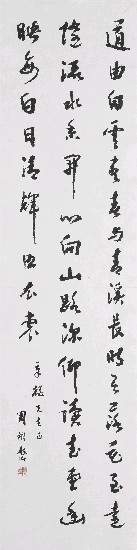 道由白雲盡春與青溪長時有落花至遠
隨流水香閒門向山路深柳讀書堂幽
映每白日清輝照衣裳
先生正
周